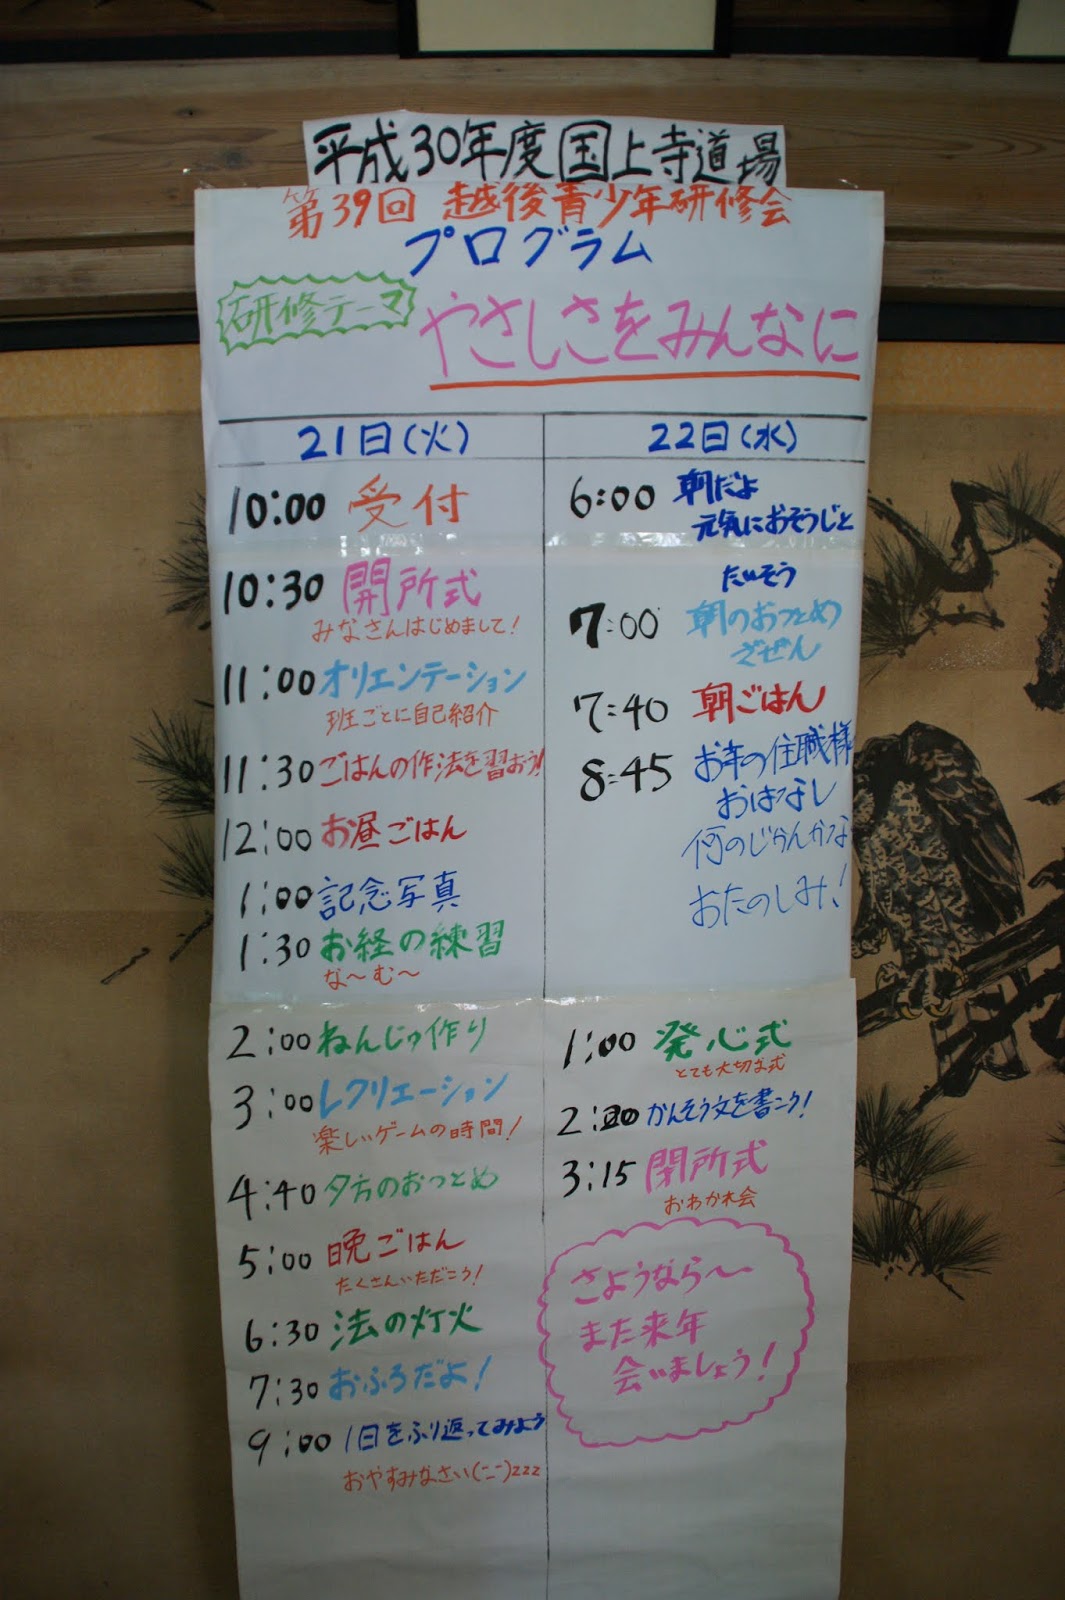 平成30年度国上寺道場
第39回 越後青少年研修会
プログラム
研修テーマ
やさしさをみんなに
21日(火)
10:00 受付
10:30 開所式
みなさんはじめまして!
11:00 オリエンテーション
班ごとに自己紹介
11:30 ごはんの作法を習おう!
12:00 お昼ごはん
1:00 記念写真
1:30 お経の練習
な〜む〜
2:00 ねんじゅ作り
3:00 レクリエーション
楽しいゲームの時間!
4:40 夕方のおつとめ
5:00 晩ごはん
たくさんいただこう!
6:30 法の灯火
7:30 おふろだよ!
9:00 1日をふり返ってみよう
おやすみなさい(ー_ー)zzz
22日(水)
6:00 朝だよ
元気におそうじと
たいそう
7:00 朝のおつとめ
ざぜん
7:40 朝ごはん
8:45 お寺の住職様
おはなし
何のじかんかな
おたのしみ!
1:00 発心式
とても大切な式
2: かんそう文を書こう!
3:15 閉所式
おわかれ会
さようなら〜
また来年
会いましょう!